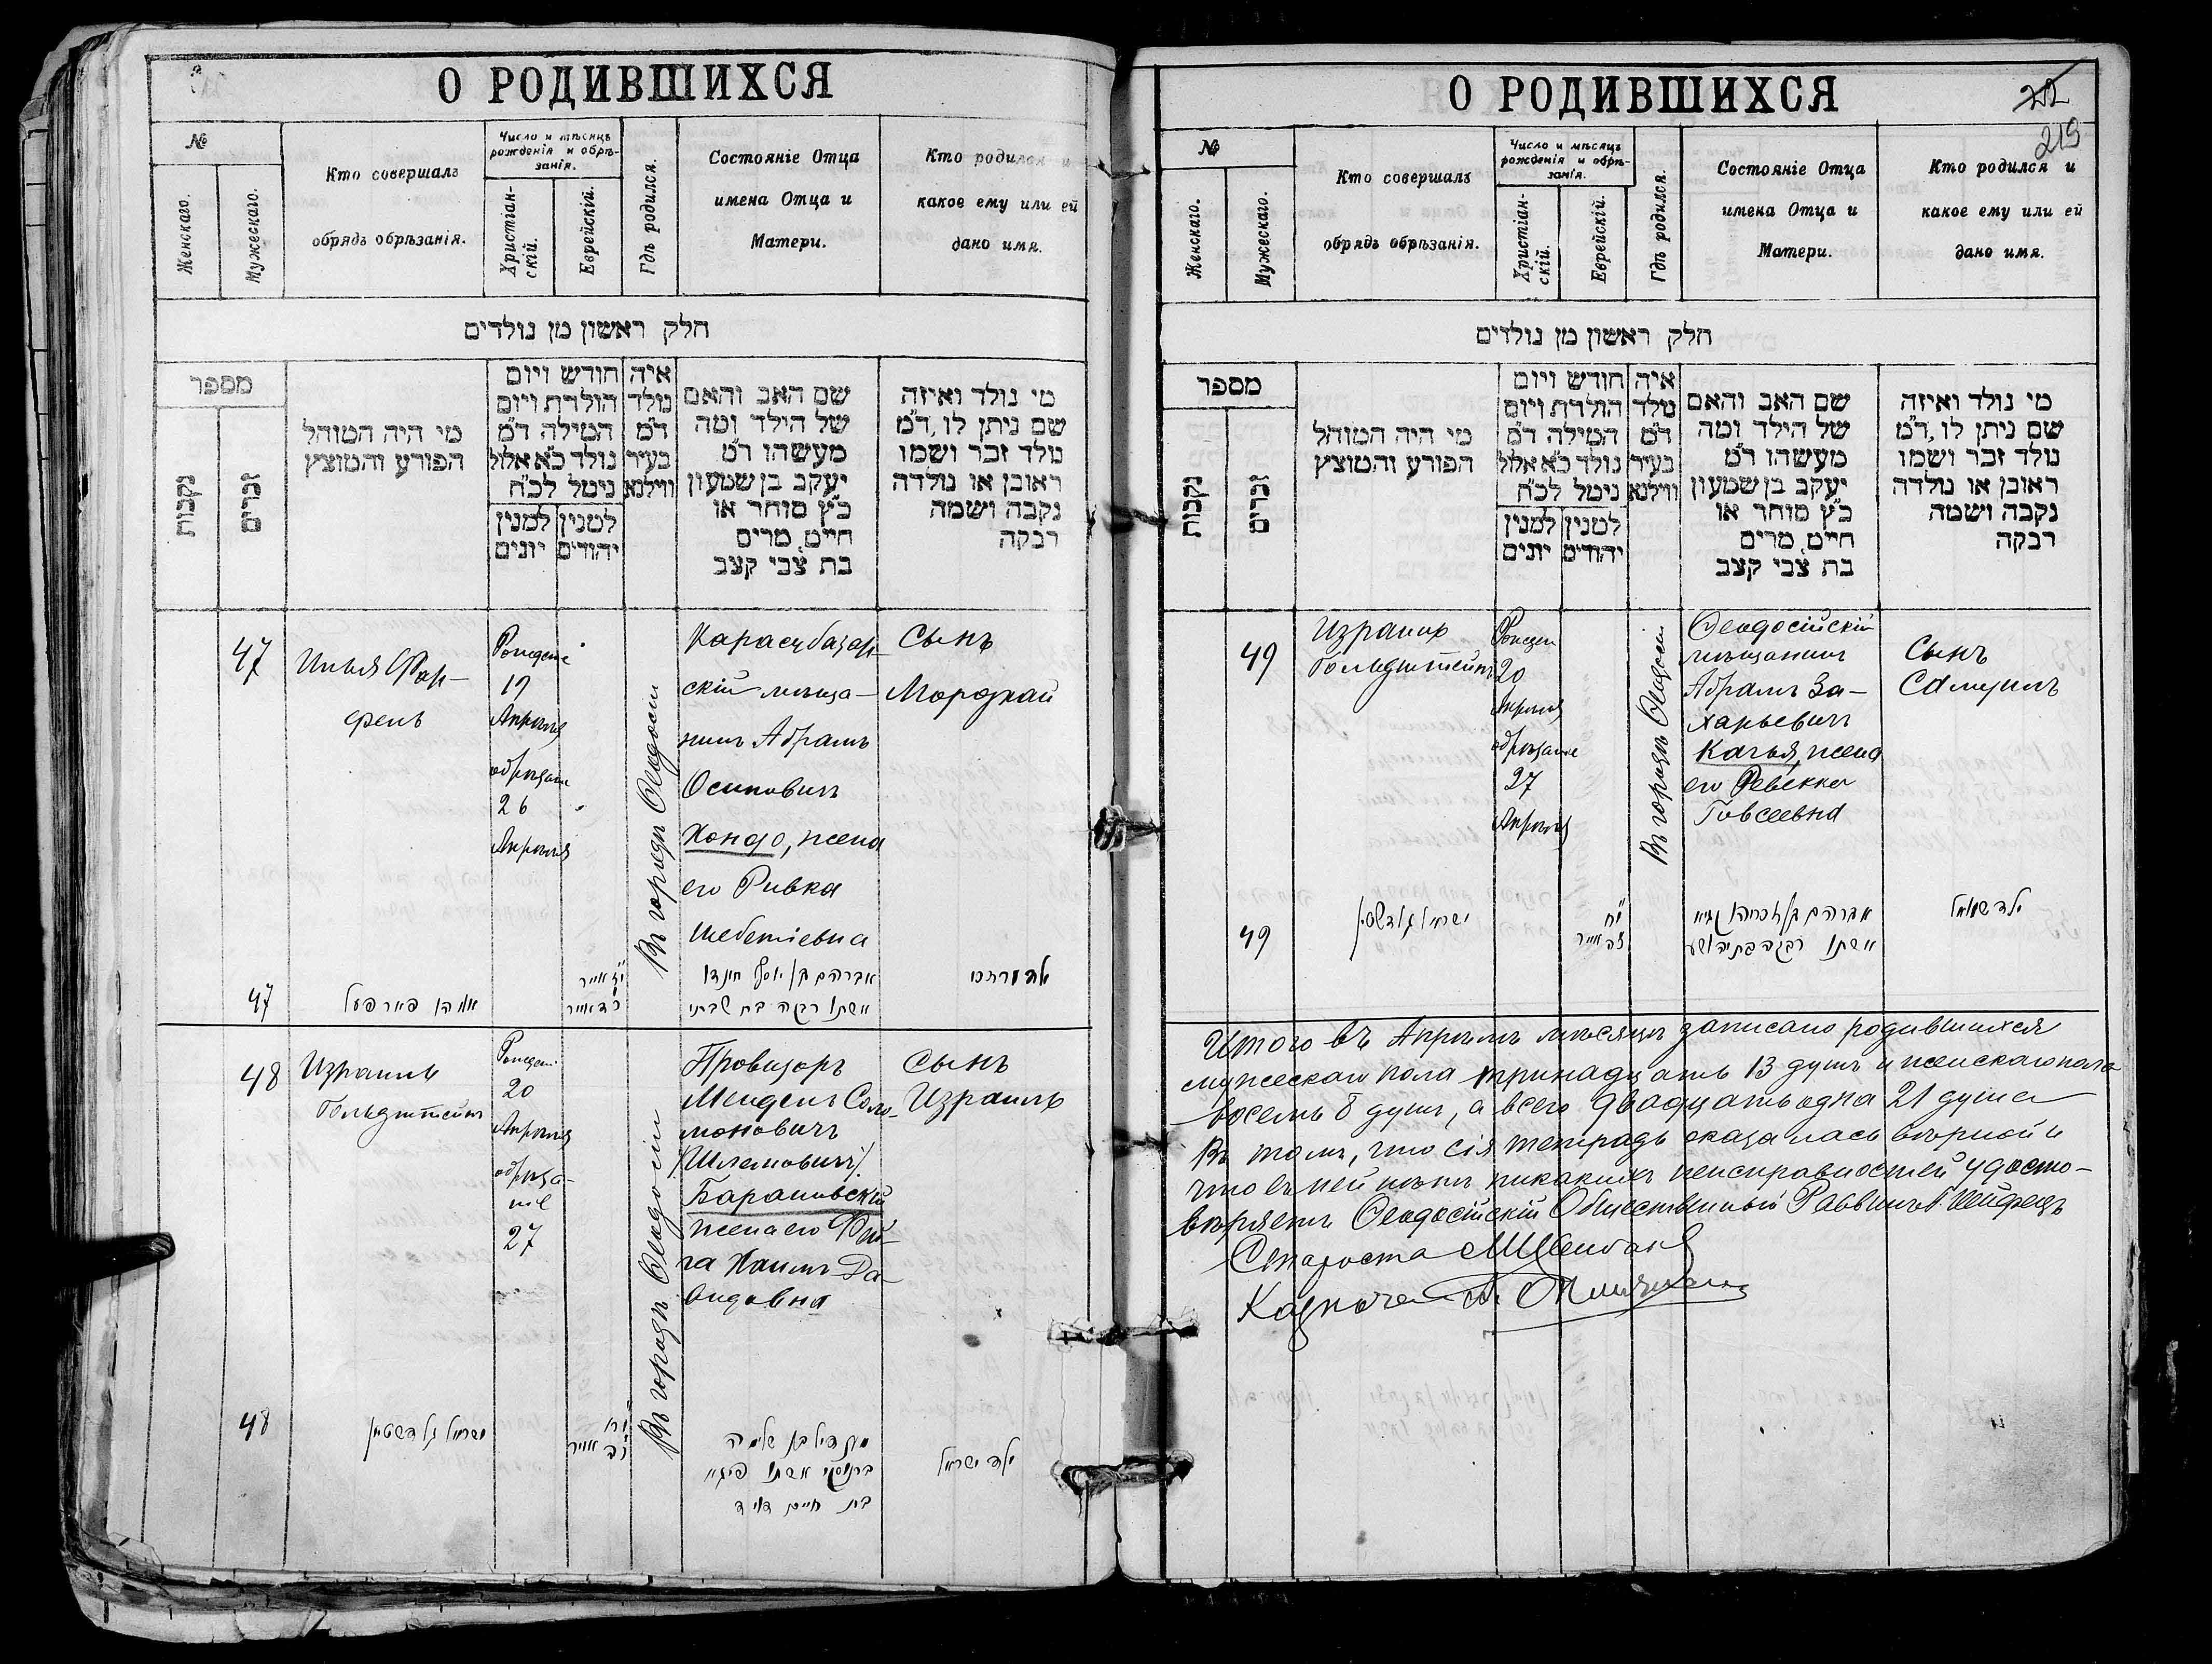 О РОДИВШИХСЯ
№
Женскаго.
Мужескаго.
Кто совершалъ
обрядъ обрѣзанія.
Число и мѣсяцъ
рожденія и обрѣ-
занія.
Христіан-
скій.
Еврейскій.
Гдѣ родился.
Состояніе Отца
имена Отца и
Матери.
Кто родился и
какое ему или ей
дано имя.
חלק ראשון מן נולדים
מספר
נקבות
זכרים
מי היה המוהל
הפורע והמוצץ
חודש ויום
הולדת ויום
המילה ד״מ
נולד כ״א אלול
נימל לכ״ח
למנין
יונים
למנין
יהודים
איה
נולד
ד״מ
בעיר
ווילנא
שם האב והאם
של הילד ומה
מעשהו ד״מ
יעקב בן שמעון
כ״ץ סוחר או
חייט, מרים
בת צבי קצב
מי נולד ואיזה
שם ניתן לו, ד״מ
נולד זכר ושמו
ראובן או נולדה
נקבה ושמה
רבקה
47
Илья Фар-
фель
19
Апрѣля
26
Апрѣля
Въ городѣ Ѳеодосіи
Карасубазар-
скій мѣща-
нинъ Абрамъ
Осиповичъ
Хондо, жена
его Ривка
Шебетіевна
Сынъ
Мордхай
47
אברהם בן יוסף חונדו
אשתו רבקה בת שבתי
48
Израиль
Гольдштейнъ
20
Апрѣля
обрѣза-
ніе
27
Въ городѣ Ѳеодосіи
Провизоръ
Мендель Соло-
моновичъ
/Шлемовичъ/
Барановскій
жена его Фей-
га Хаимъ-Да-
видовна
Сынъ
Израиль
48
ישראל גולדשטיין
בת חיים דוד
ילד ישראל
О РОДИВШИХСЯ
219
№
Женскаго.
Мужескаго.
Кто совершалъ
обрядъ обрѣзанія.
Число и мѣсяцъ
рожденія и обрѣ-
занія.
Христіан-
скій.
Еврейскій.
Гдѣ родился.
Состояніе Отца
имена Отца и
Матери.
Кто родился и
какое ему или ей
дано имя.
חלק ראשון מן נולדים
מספר
נקבות
זכרים
מי היה המוהל
הפורע והמוצץ
חודש ויום
הולדת ויום
המילה ד״מ
נולד כ״א אלול
נימל לכ״ח
למנין
יונים
למנין
יהודים
איה
נולד
ד״מ
בעיר
ווילנא
שם האב והאם
של הילד ומה
מעשהו ד״מ
יעקב בן שמעון
כ״ץ סוחר או
חייט, מרים
בת צבי קצב
מי נולד ואיזה
שם ניתן לו, ד״מ
נולד זכר ושמו
ראובן או נולדה
נקבה ושמה
רבקה
49
Израиль
Гольдштейнъ
20
Апрѣля
обрѣзаніе
27
Апрѣля
Въ городѣ Ѳеодосіи
Ѳеодосійскій
мѣщанинъ
Абрамъ За-
харьевичъ
Качья, жена
его Ревекка
Говсеевна
Сынъ
Самуилъ
49
ישראל גולדשטיין
ילד שמואל
Итого въ Апрѣлѣ мѣсяцѣ записано родившихся
мужескаго пола тринадцать 13 душъ и женскаго пола
восемь 8 душъ, а всего двадцать одна 21 душа
Въ томъ, что сія тетрадь оказалась вѣрной и
что въ ней нѣтъ никакихъ неисправностей удосто-
вѣряетъ Ѳеодосійскій Общественный Раввинъ
Староста
Казначей